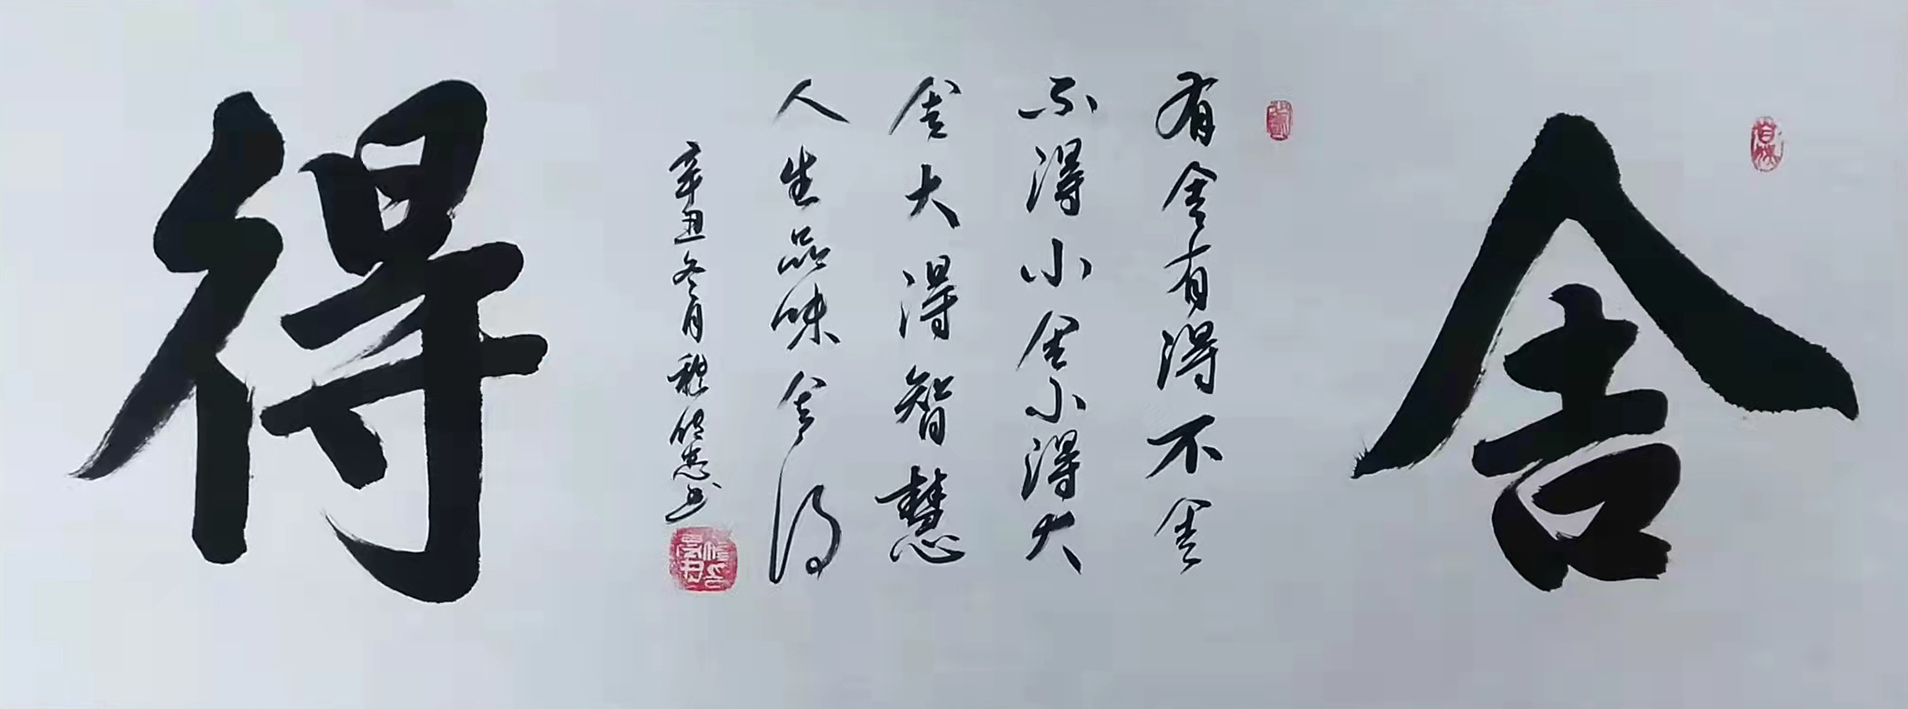 舍
有舍有得不舍
不得小舍小得大
舍大得智慧
人生品味舍得
辛丑冬月程
得